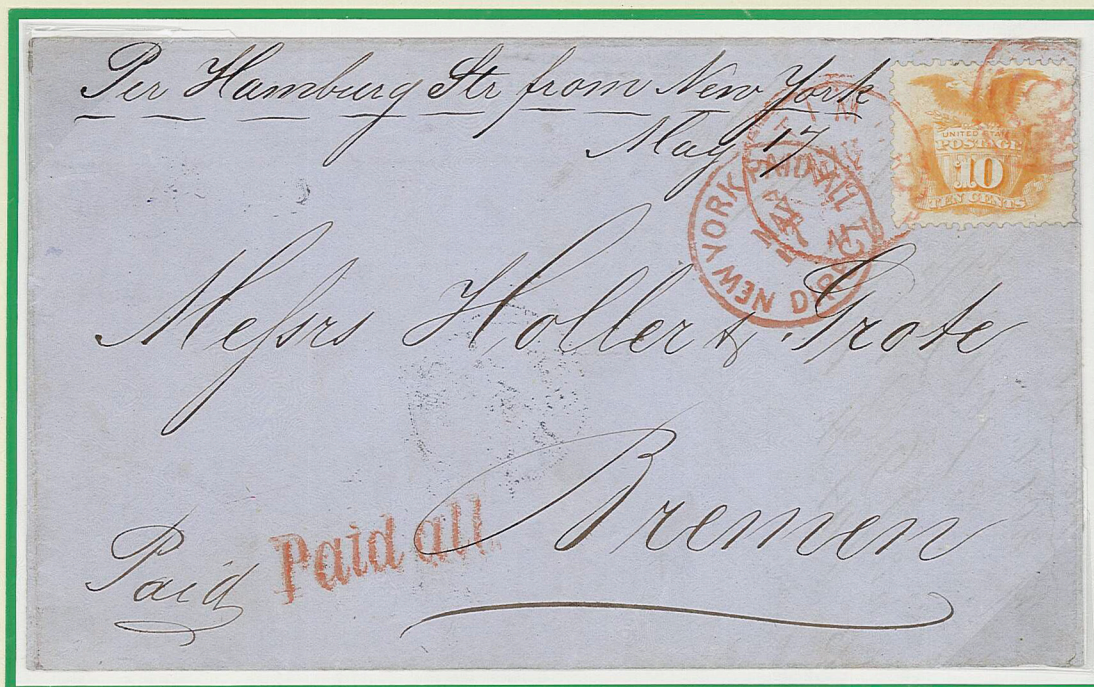 Per Hamburg Str from New York
May 17
UNITED STATES
POSTAGE
10
TEN CENTS
NEW YORK PAID ALL DIRECT
Messrs Holler & Grote
Bremen
Paid
Paid all.